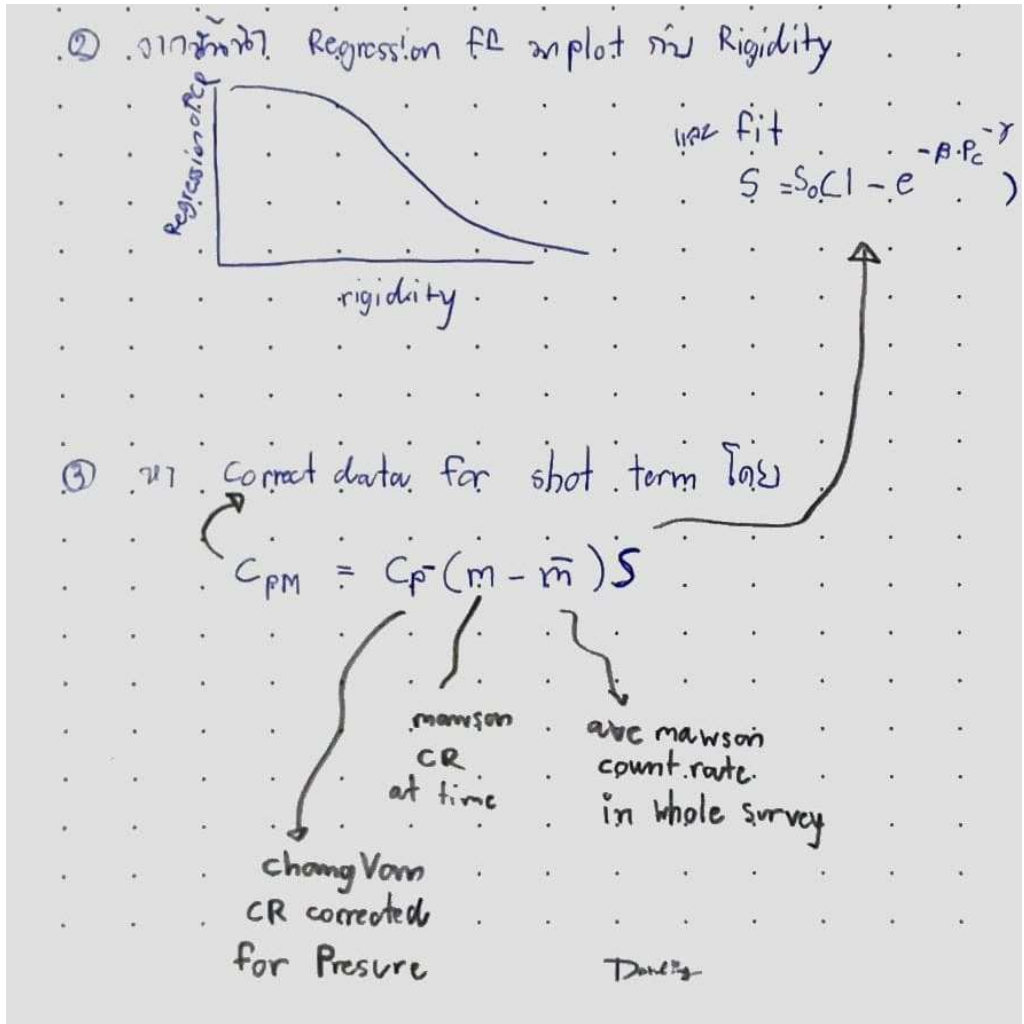 ② จากนั้นนำ Regression มา plot กับ Rigidity
Regression
rigidity
และ fit
S = S₀(1 - e^{-β·P_C^{-γ}})
③ หา Correct data for shot term โดย
C_{PM} = C_P - (m - m̄)S
mawson
CR
at time
ave mawson
count rate
in whole survey
chang Van
CR corrected
for Presure